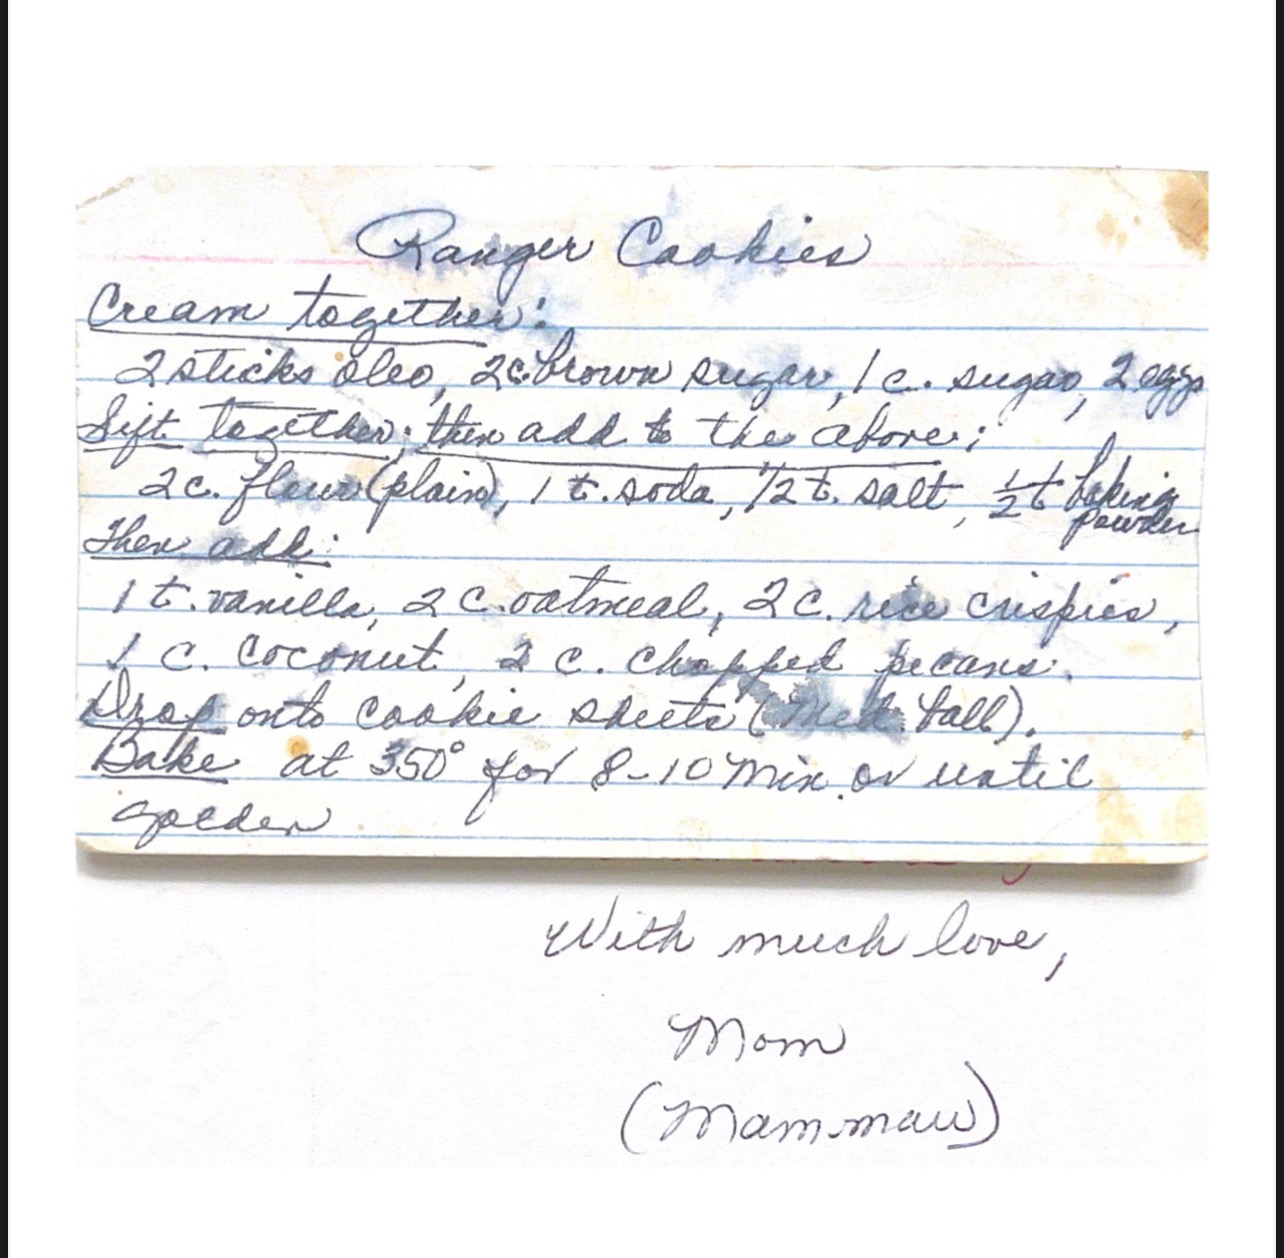 Ranger Cookies
Cream together:
2 sticks oleo, 2c. brown sugar, 1 c. sugar, 2 eggs
Sift together, then add to the above:
2c. flour (plain), 1 t. soda, 1/2 t. salt, 1/2 t baking powder
Then add:
1 t. vanilla, 2 c. oatmeal, 2 c. rice crispies,
1 c. coconut, 2 c. chopped pecans.
Drop onto cookie sheets (Med. ball).
Bake at 350° for 8-10 Min. or until
golden
With much love,
Mom
(Mammaw)